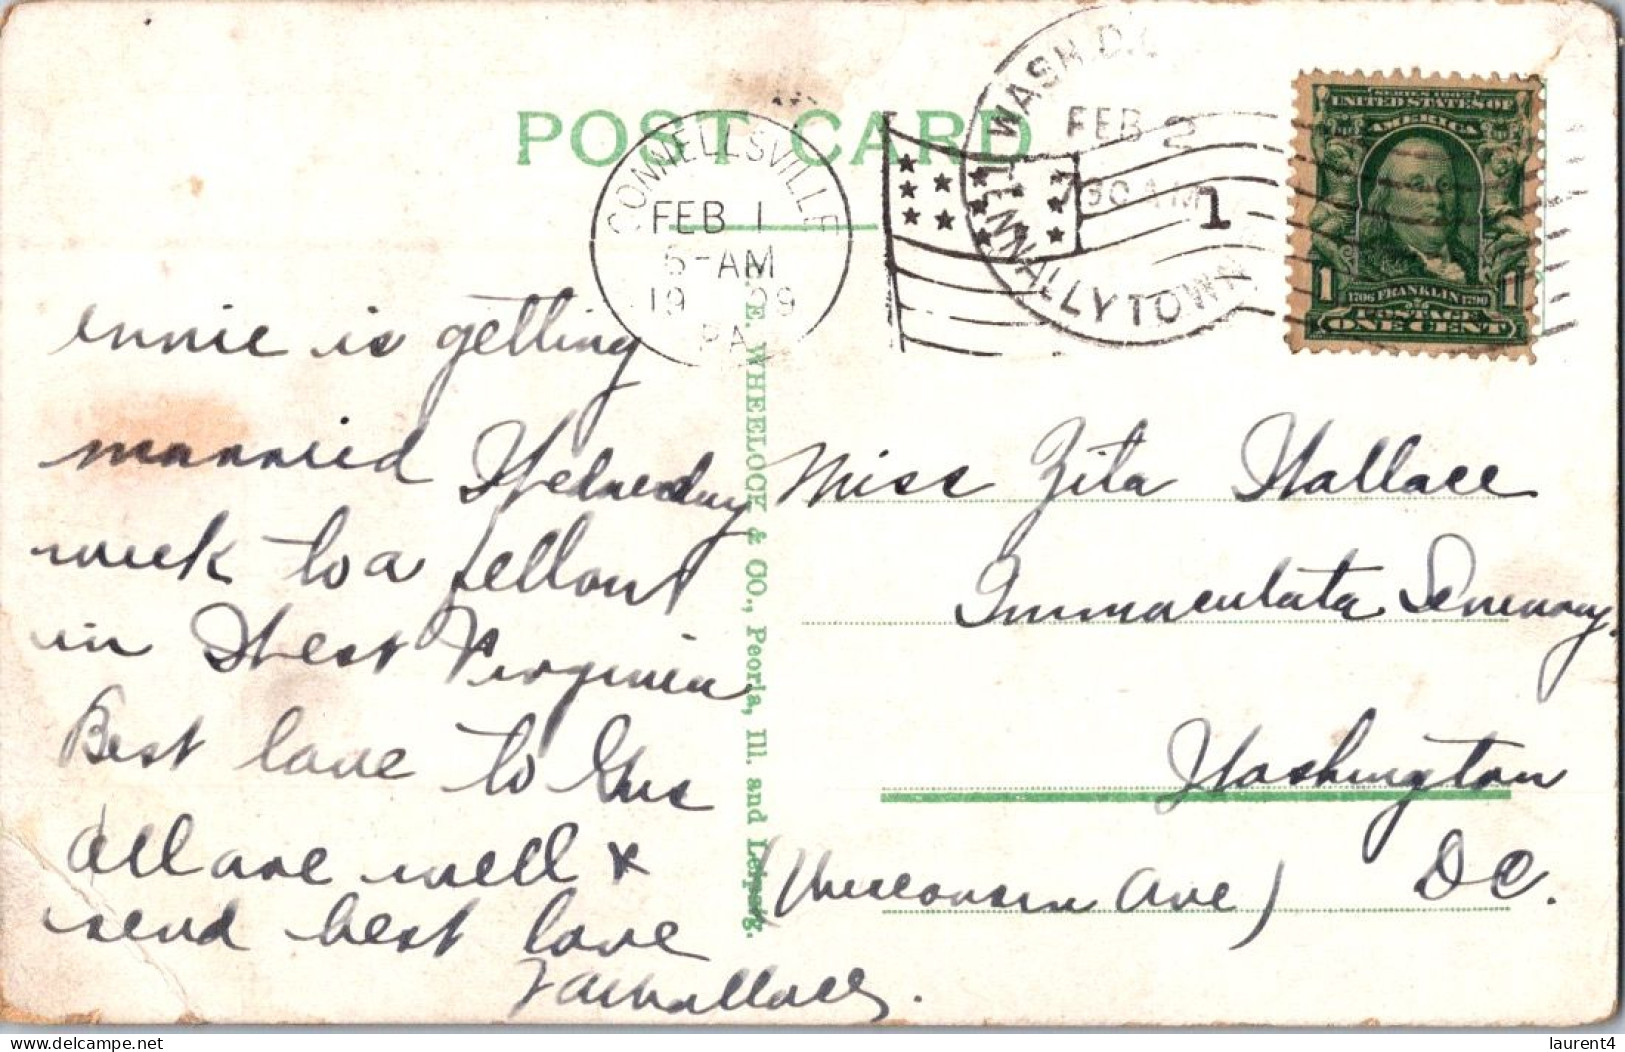 POST CARD
CONNELLSVILLE
FEB 1
5-AM
19 09
PA
WASH. D.C.
FEB 2
730 AM
1
TENNALLYTOWN
SERIES 1902
UNITED STATES OF
AMERICA
1 1706 FRANKLIN 1790 1
POSTAGE
ONE CENT
ennie is getting
married Wednesday
week to a fellow
in West Virginia
Best love to Gus
All are well &
send best love
Wallace.
E. WHEELOCK & CO., Peoria, Ill. and Leipzig.
Miss Zita Wallace
Immaculata Seminary.
Washington
D C.
(Wisconsin Ave)
laurent4